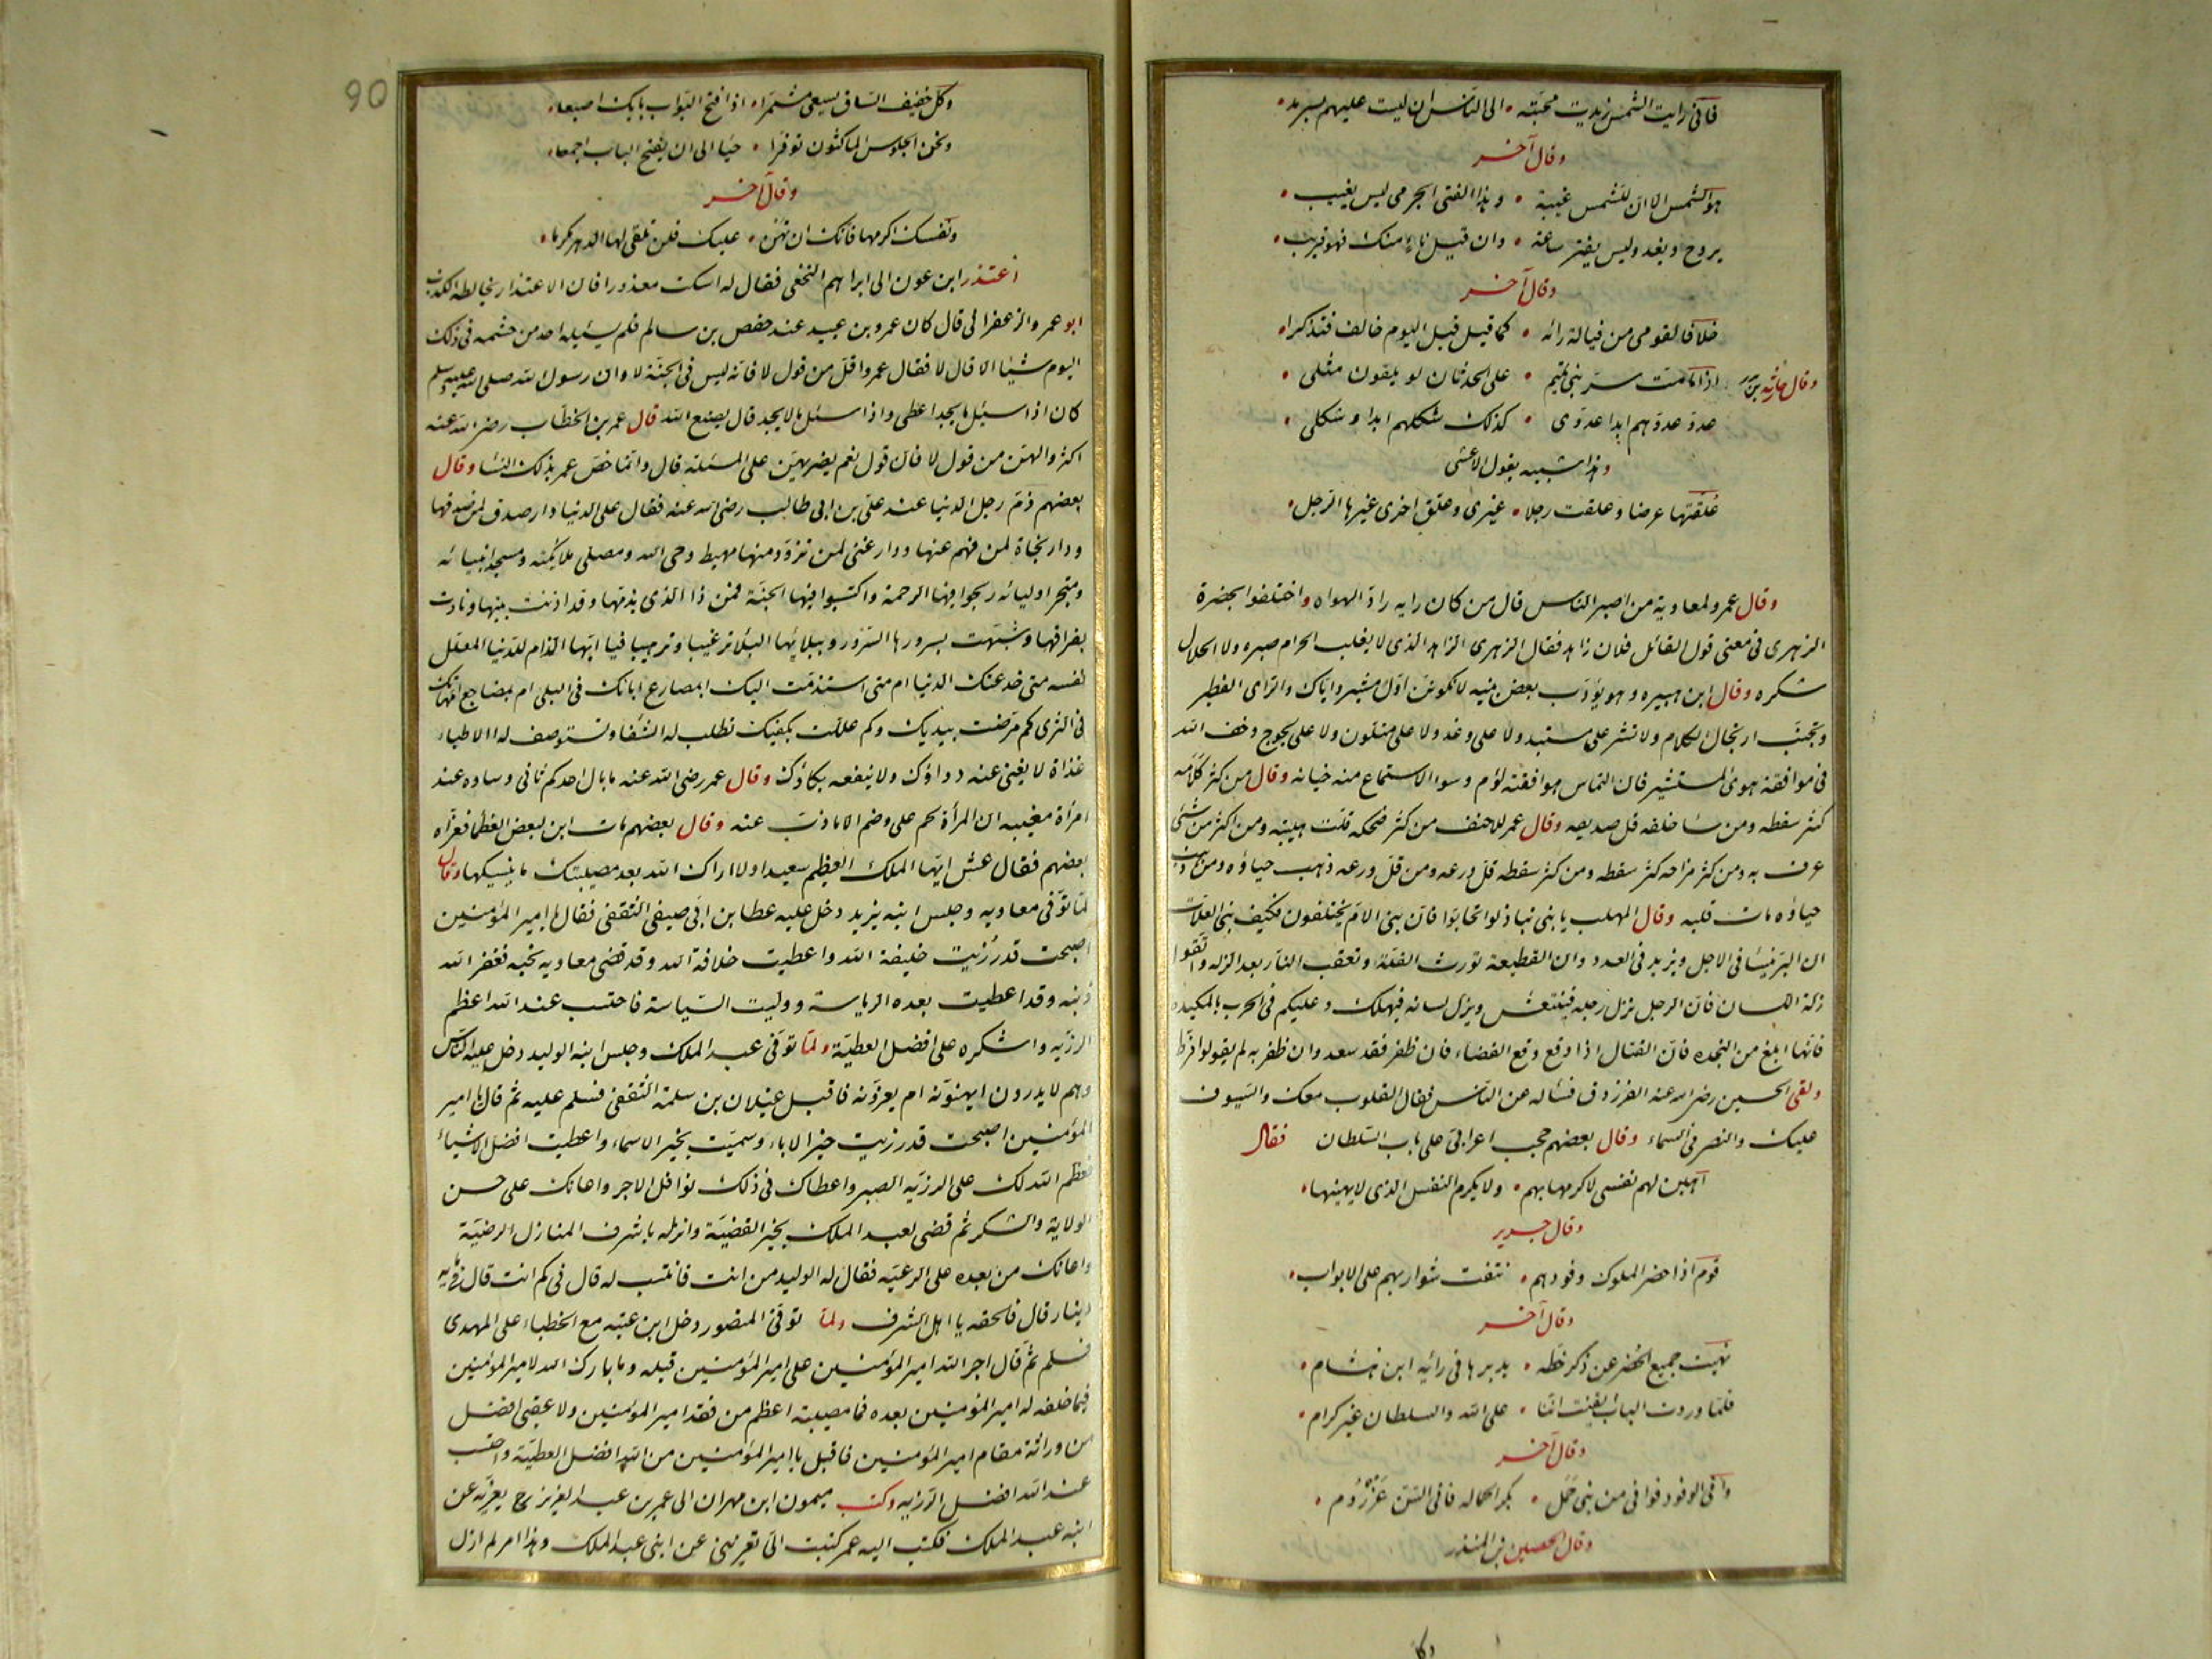 فاني رايت الشمس زيدت محبته • الى الناس ان ليست عليهم بسرمد •
وقال آخر
هو الشمس الا ان للشمس غيبة • وهذا الفتى الجرمي ليس يغيب •
يروح ويغدو ليس يفتر ساعة • وان قيل ناء منك فهو قريب •
وقال آخر
خلافا لقومي من فيالة رائه • كما قيل قبل اليوم خالف فتذكرا •
وقال حارثة بن بدر اذا ما مت سر بني تميم • على الحدثان لو يلقون مثلي •
عدو عدوهم ابدا عدوي • كذلك شكلهم ابدا وشكلي •
وهذا شبيه بقول الاعشى
علقتها عرضا وعلقت رجلا • غيري وعلق اخرى غيرها الرجل •
وقال عمرو لمعاوية من اصبر الناس قال من كان رايه رادا لهواه واختلفوا بحضرة
الزهري في معنى قول القائل فلان زاهد فقال الزهري الزاهد الذي لا يغلب الحرام صبره ولا الحلال
شكره وقال ابن هبيره وهو يؤدب بعض بنيه لا تكونن اول مشير واياك والراى الفطير
وتجنب ارتجال الكلام ولا تشر على مستبد ولا على وغد ولا على متلون ولا على لجوج وخف الله
في موافقة هوى المستشير فان التماس موافقته لؤم وسوء الاستماع منه خيانه وقال من كثر كلامه
كثر سقطه ومن ساء خلقه قل صديقه وقال عمر للاحنف من كثر ضحكه قلت هيبته ومن اكثر من شئ
عرف به ومن كثر مزاحه كثر سقطه ومن كثر سقطه قل ورعه ومن قل ورعه ذهب حياؤه ومن ذهب
حياؤه مات قلبه وقال المهلب يا بني تباذلوا تحابوا فان بني الام يختلفون فكيف بني العلات
ان البر ينسأ في الاجل ويزيد في العدد وان القطيعة تورث القلة وتعقب النار بعد الزله واتقوا
زلة اللسان فان الرجل تزل رجله فينتعش ويزل لسانه فيهلك وعليكم في الحرب بالمكيده
فانها ابلغ من النجده فان القتال اذا وقع وقع القضاء فان ظفر فقد سعد وان ظفر به لم يقولوا فرط
ولقي الحسين رضي الله عنه الفرزدق فسأله عن الناس فقال القلوب معك والسيوف
عليك والنصر في السماء وقال بعضهم حجب اعرابي على باب السلطان فقال
اهين لهم نفسي لاكرمها بهم • ولا يكرم النفس الذي لا يهينها •
وقال جرير
قوم اذا حضر الملوك وفودهم • نتفت شواربهم على الابواب •
وقال آخر
نهيت جميع الحضر عن ذكر خطه • يدبرها في رائيه ابن هشام •
فلما وردت الباب ايقنت اننا • على الله والسلطان غير كرام •
وقال آخر
وافى الوفود فوافى من بني حمل • بكر الحماله فاني السن عرزوم •
وقال الحصين بن المنذر
وكل
90
وكل خفيف الساق يسعى مشمرا • اذا فتح البواب بابك اصبعا •
ونحن الجلوس الماكثون توقرا • حياء الى ان يفتح الباب اجمعا •
وقال آخر
ونفسك اكرمها فانك ان تهن • عليك فلن تلقى لها الدهر مكرما •
اعتذر ابن عون الى ابراهيم النخعي فقال له اسكت معذورا فان الاعتذار يخالطه الكذب
ابو عمرو الزعفراني قال كان عمرو بن عبيد عند حفص بن سالم فلم يسئله احد من حشمه في ذلك
اليوم شيئا الا قال لا فقال عمرو اقل من قول لا فانه ليس في الجنة لا وان رسول الله صلى الله عليه وسلم
كان اذا سئل ما يجد اعطى واذا سئل ما لا يجد قال يصنع الله قال عمر بن الخطاب رضي الله عنه
اكثروا لهن من قول لا فان قول نعم يضريهن على المسئلة قال وانما خص عمر بذلك النساء وقال
بعضهم ذم رجل الدنيا عند علي بن ابي طالب رضي الله عنه فقال علي الدنيا دار صدق لمن صدقها
ودار نجاة لمن فهم عنها ودار غنى لمن تزود منها مهبط وحي الله ومصلى ملائكته ومسجد انبيائه
ومتجر اوليائه ربحوا فيها الرحمة واكتسبوا فيها الجنة فمن ذا الذي يذمها وقد اذنت ببينها ونادت
بفراقها وشبهت بسرورها السرور وببلائها البلاء ترغيبا وترهيبا فيا ايها الذام للدنيا المعلل
نفسه متى خدعتك الدنيا ام متى استذمت اليك ابمصارع ابائك في البلى ام بمضاجع امهاتك
في الثرى كم مرضت بيديك وكم عللت بكفيك تطلب له الشفاء وتستوصف له الاطباء
غداة لا يغني عنه دواؤك ولا ينفعه بكاؤك وقال عمر رضي الله عنه ما بال احدكم ثاني وساده عند
امرأة مغيبه ان المرأة لحم على وضم الا ما ذب عنه وقال بعضهم مات ابن لبعض العظما فعزاه
بعضهم فقال عش ايها الملك العظيم سعيدا ولا اراك الله بعد مصيبتك ما ينسيكها وقال
لما توفى معاويه وجلس ابنه يزيد دخل عليه عطا بن ابي صيفي الثقفي فقال يا امير المؤمنين
اصبحت قد رزيت خليفة الله واعطيت خلافة الله وقد قضى معاويه نحبه فغفر الله
ذنبه وقد اعطيت بعده الرياسة ووليت السياسة فاحتسب عند الله اعظم
الرزيه واشكره على افضل العطية ولما توفى عبد الملك وجلس ابنه الوليد دخل عليه الناس
وهم لا يدرون ايهنونه ام يعزونه فاقبل غيلان بن سلمة الثقفي فسلم عليه ثم قال يا امير
المؤمنين اصبحت قد رزيت خير الاباء وسميت بخير الاسماء واعطيت افضل الاشياء
فعظم الله لك على الرزيه الصبر واعطاك في ذلك نوافل الاجر واعانك على حسن
الولاية والشكر ثم قضى لعبد الملك بخير القضية وانزله باشرف المنازل الرضية
واعانك من بعده على الرعيه فقال له الوليد من انت فانتسب له قال في كم انت قال في مايه
دينار قال فالحقه يا اهل الشرف ولما توفى المنصور دخل ابن عتبه مع الخطباء على المهدى
فسلم ثم قال اجر الله امير المؤمنين على امير المؤمنين قبله وبارك الله لامير المؤمنين
فيما خلفه له امير المؤمنين بعده فما مصيبته اعظم من فقد امير المؤمنين ولا عقبى افضل
من وراثة مقام امير المؤمنين فاقبل يا امير المؤمنين من الله افضل العطية واحتسب
عند الله افضل الرزيه وكتب ميمون ابن مهران الى عمر بن عبد العزيز رح يعزيه عن
ابنه عبد الملك فكتب اليه عمر كتبت الى تعزيني عن ابني عبد الملك وهذا امر لم ازل